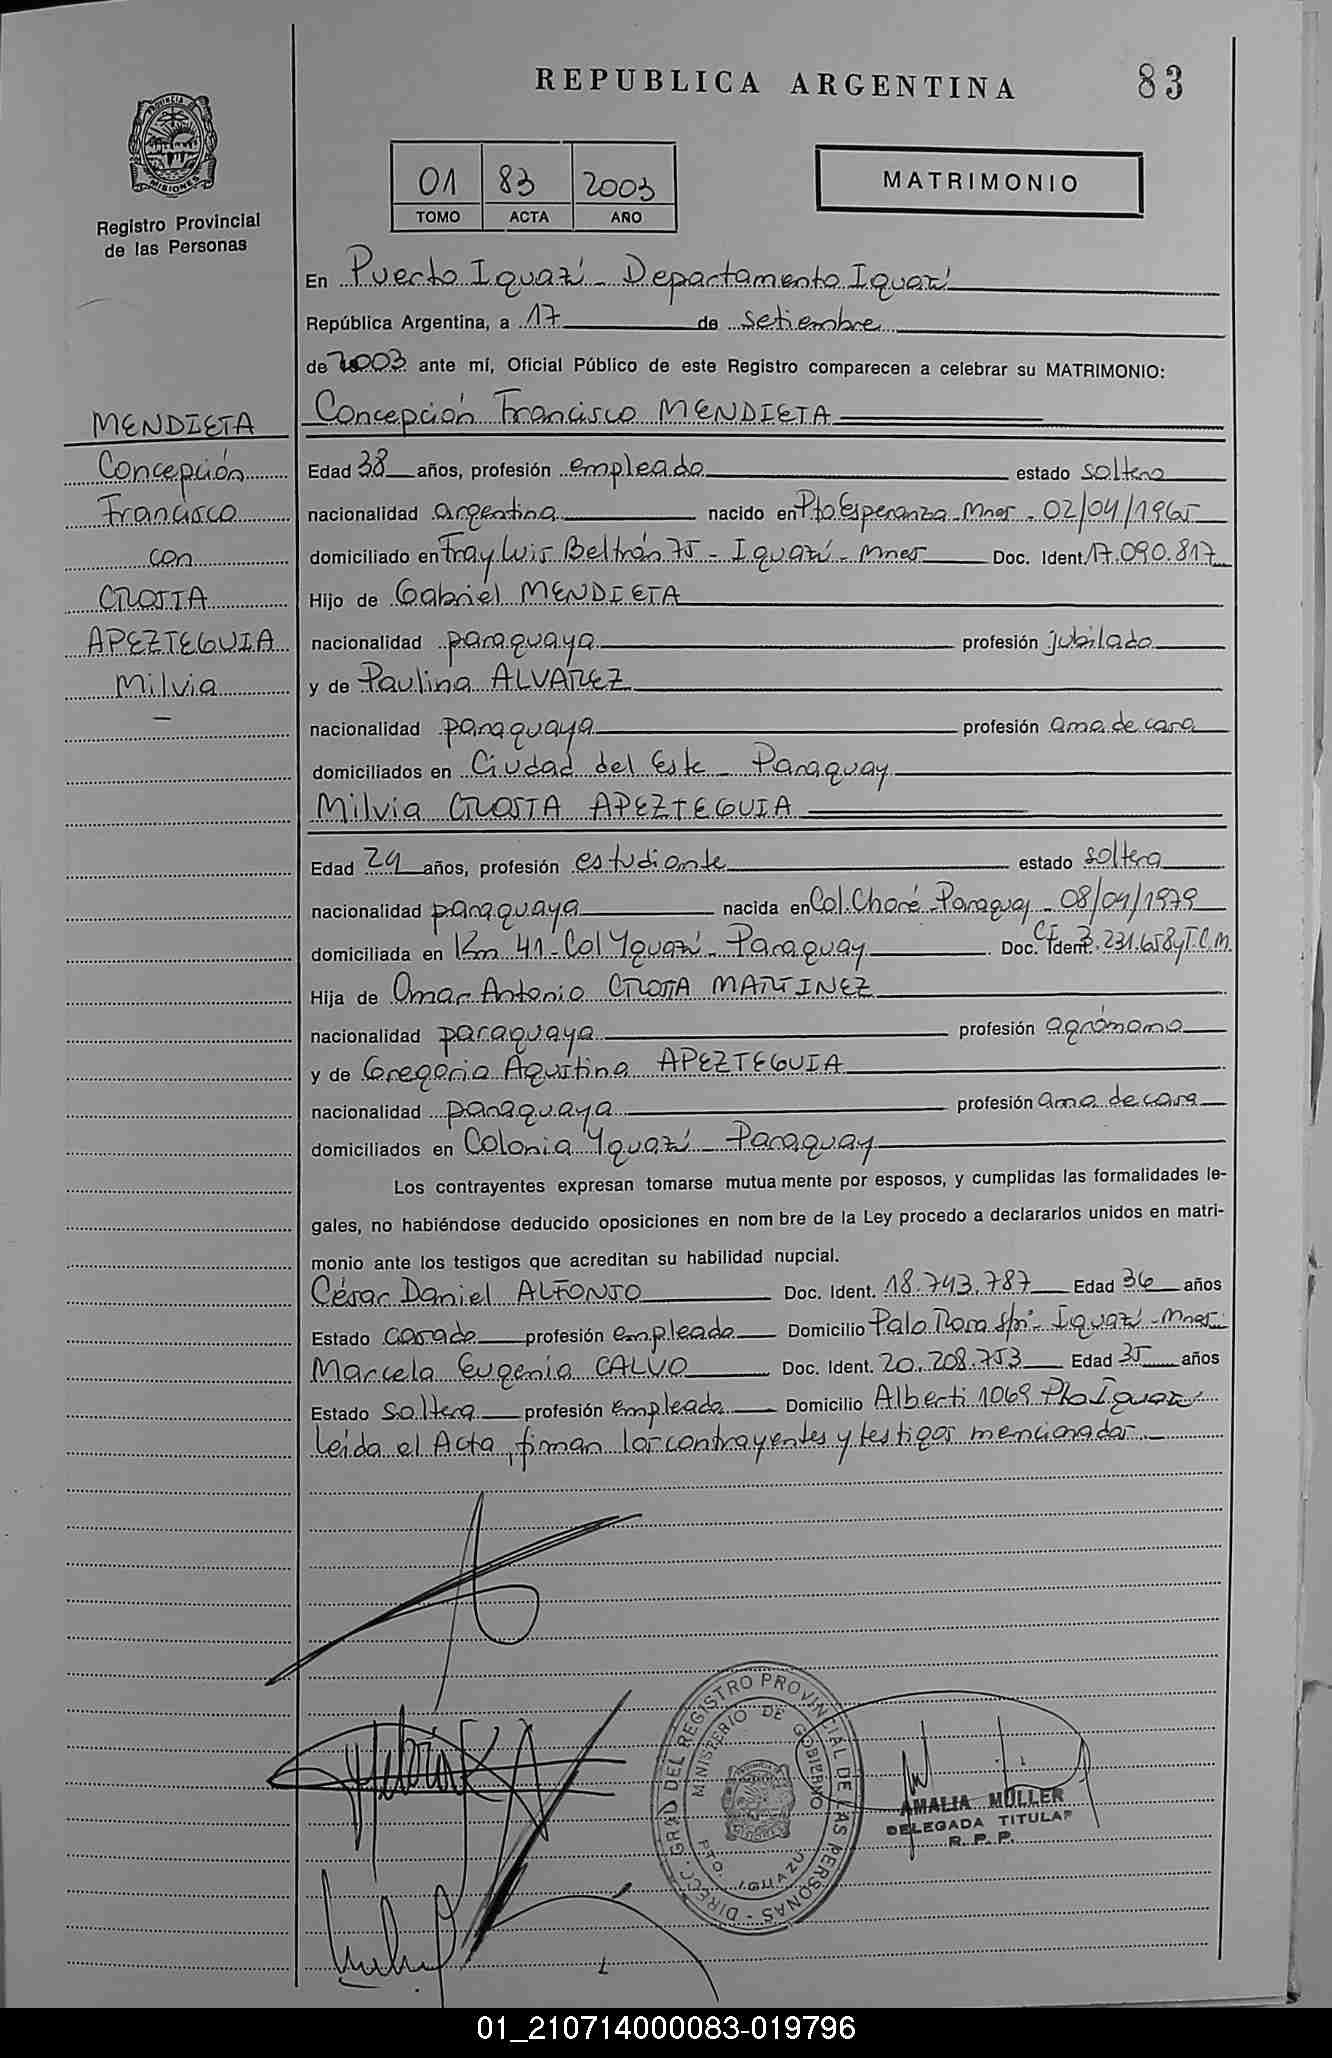 REPUBLICA ARGENTINA
83
PROVINCIA DE
MISIONES
Registro Provincial
de las Personas
01 83 2003
TOMO ACTA AÑO
MATRIMONIO
En Puerto Iguazú - Departamento Iguazú
República Argentina, a 17 de setiembre
de 2003 ante mí, Oficial Público de este Registro comparecen a celebrar su MATRIMONIO:
Concepción Francisco MENDIETA
MENDIETA
Concepción
Francisco
con
CROSTA
APEZTEGUIA
Milvia
Edad 38 años, profesión empleado estado soltero
nacionalidad argentina nacido en Pto Esperanza - Mnes - 02/04/1965
domiciliado en Fray Luis Beltrán 75 - Iguazú - Mnes Doc. Ident. 17.090.817
Hijo de Gabriel MENDIETA
nacionalidad paraguaya profesión jubilado
y de Paulina ALVAREZ
nacionalidad paraguaya profesión ama de casa
domiciliados en Ciudad del Este - Paraguay
Milvia CROSTA APEZTEGUIA
Edad 24 años, profesión estudiante estado soltera
nacionalidad paraguaya nacida en Col. Choré - Paraguay - 08/04/1979
domiciliada en Km 41 - Col Yguazú - Paraguay Doc. Ident. CI 3.231.658 y T.C.M.
Hija de Omar Antonio CROSTA MARTINEZ
nacionalidad paraguaya profesión agrónomo
y de Gregoria Agustina APEZTEGUIA
nacionalidad paraguaya profesión ama de casa
domiciliados en Colonia Yguazú - Paraguay
Los contrayentes expresan tomarse mutua mente por esposos, y cumplidas las formalidades le-
gales, no habiéndose deducido oposiciones en nom bre de la Ley procedo a declararlos unidos en matri-
monio ante los testigos que acreditan su habilidad nupcial.
César Daniel ALFONSO Doc. Ident. 18.743.787 Edad 36 años
Estado casado profesión empleado Domicilio Palo Rosa s/n - Iguazú - Mnes
Marcela Eugenia CALVO Doc. Ident. 20.208.753 Edad 35 años
Estado soltera profesión empleada Domicilio Alberti 1069 Pto Iguazú
Leída el Acta, firman los contrayentes y testigos mencionados.
DIRECC. GRAL DEL REGISTRO PROVINCIAL DE LAS PERSONAS
MINISTERIO DE GOBIERNO
PTO. IGUAZU
AMALIA MULLER
DELEGADA TITULAR
R. P. P.
01_210714000083-019796